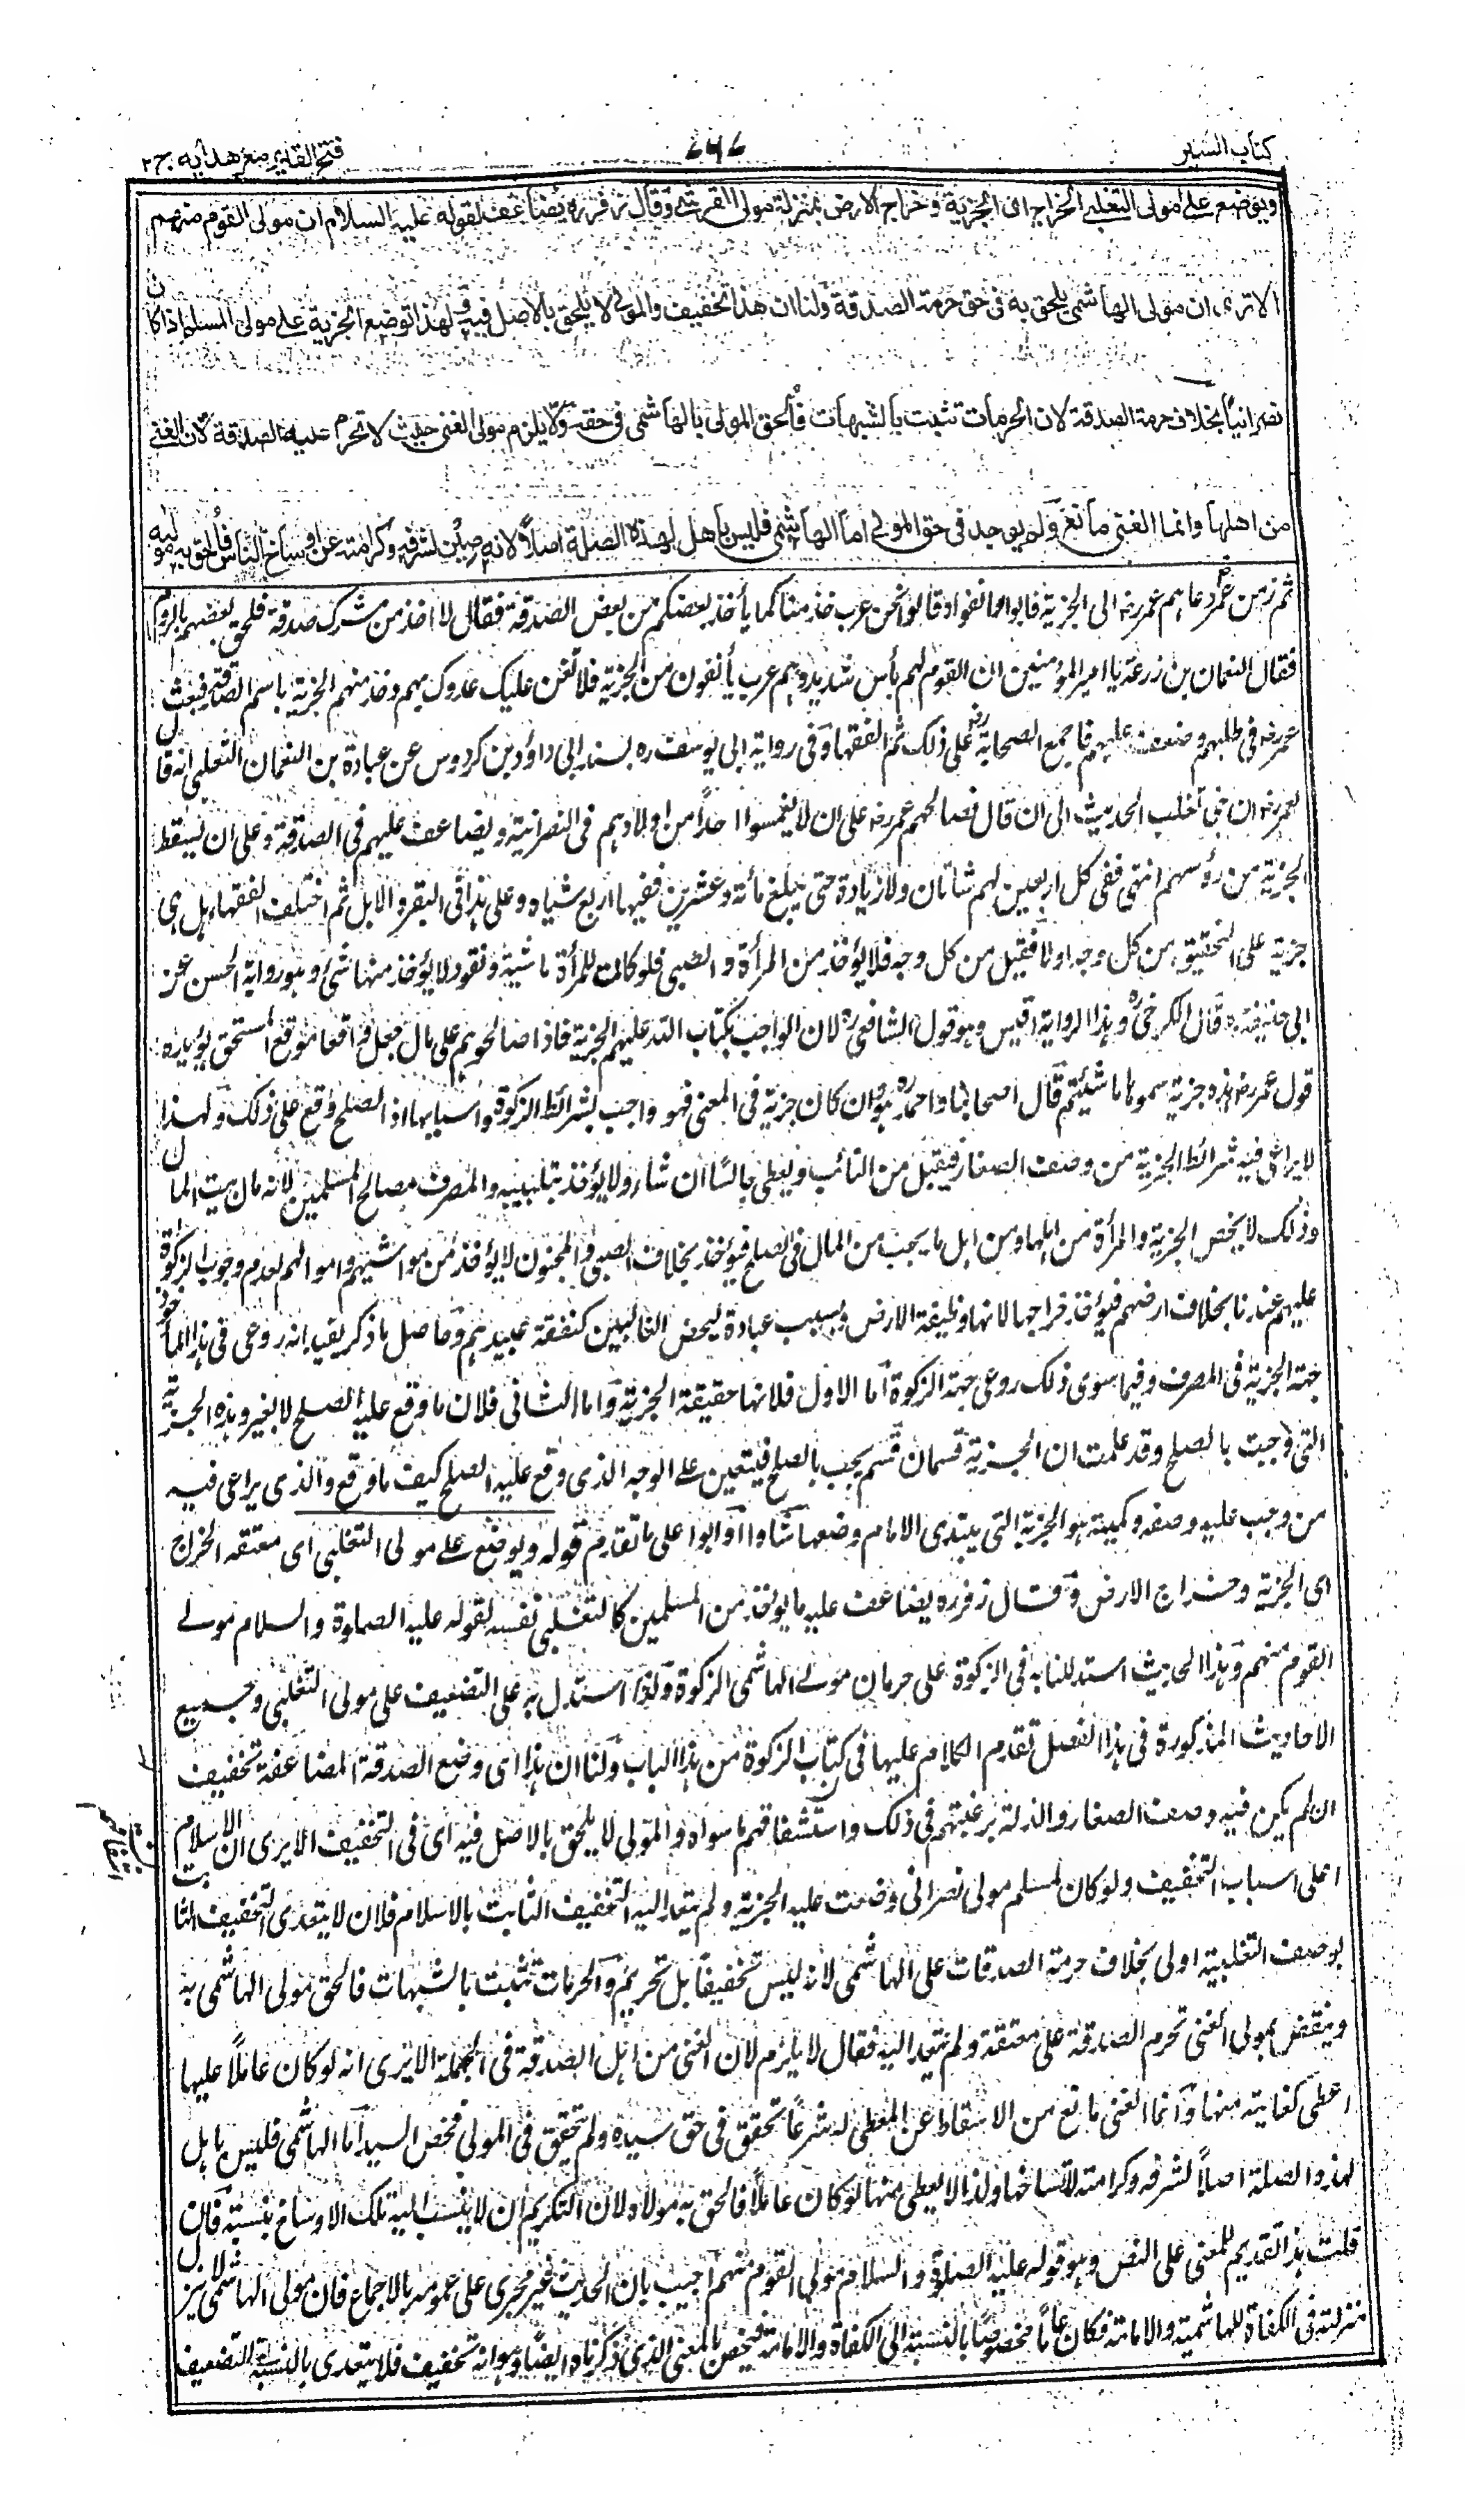 كتاب السير
٧٦٧
فتح القدير مع هدايه ج ٢
ويوضع على مولى التغلبي الخراج اى الجزية وخراج الارض بمنزلة مولى القرشى وقال زفر ره يضاعف لقوله عليه السلام ان مولى القوم منهم
الا ترى ان مولى الهاشمى يلحق به فى حق حرمة الصدقة ولنا ان هذا تخفيف والمولى لا يلحق بالاصل فيه ولهذا توضع الجزية على مولى المسلم اذا كان
نصرانياً بخلاف حرمة الصدقة لان الحرمات تثبت بالشبهات فالحق المولى بالهاشمى فى حقه ولا يلزم مولى الغنى حيث لا تحرم عليه الصدقة لان الغنى
من اهلها وانما الغنى مانع ولم يوجد فى حق المولى اما الهاشمى فليس باهل لهذه الصلة اصلاً لانه صين لشرفه وكرامته عن اوساخ الناس فالحق به مولاه
ثم زمن عمر دعاهم عمر رض الى الجزية فابوا وانفوا وقالوا نحن عرب خذ منا كما يأخذ بعضكم من بعض الصدقة فقال لا اخذ من مشرك صدقة فلحق بعضهم بالروم
فقال النعمان بن زرعة يا امير المؤمنين ان القوم لهم بأس شديد وهم عرب يأنفون من الجزية فلا تعن عليك عدوك بهم وخذ منهم الجزية باسم الصدقة فبعث
عمر رض فى طلبهم وضعف عليهم فاجمع الصحابة رض على ذلك ثم الفقهاء وفى رواية ابى يوسف ره بسنده الى داؤد بن كردوس عن عبادة بن النعمان التغلبى انه قال
لعمر رض ان بنى تغلب الحديث الى ان قال فصالحهم عمر رض على ان لا يغمسوا احداً من اولادهم فى النصرانية ويضاعف عليهم فى الصدقة وعلى ان يسقط
الجزية من رؤسهم انتهى ففى كل اربعين لهم شاتان ولا زيادة حتى يبلغ مائة وعشرين ففيها اربع شياه وعلى هذا فى البقر والابل ثم اختلف الفقهاء هل هى
جزية على التحقيق من كل وجه اولا فقيل من كل وجه فلا يؤخذ من المرأة والصبى فلو كانت للمرأة ماشية ونقود لا يؤخذ منها شئ وهو رواية الحسن عن
ابى حنيفة ره قال الكرخى ره وهذا الرواية اقيس وهو قول الشافعى ره لان الواجب بكتاب الله عليهم الجزية فاذا صالحوهم على مال جعل واقعا موقع المستحق يؤيده
قول عمر رض هذه جزية سموها ما شئتم قال اصحابنا واحمد ره هو وان كان جزية فى المعنى فهو واجب بشرائط الزكوة واسبابها اذ الصلح وقع على ذلك ولهذا
لا يراعى فيه شرائط الجزية من وصف الصغار فيقبل من النائب ويعطى جالسًا ان شاء ولا يؤخذ بتلبيبه والمصرف مصالح المسلمين لانه مال بيت المال
وذلك لا يخص الجزية والمرأة من اهلها ومن اهل ما يجب من المال فى الصلح فيؤخذ بخلاف الصبى والمجنون لا يؤخذ من مواشيهم واموالهم لعدم وجوب الزكوة
عليهم عندنا بخلاف ارضهم فيؤخذ خراجها لانها وظيفة الارض وليست عبادة ليخص البالغين كنفقة عبيدهم وحاصل ما ذكر يفيد انه روعى فى هذا المأخوذ
جهة الجزية فى المصرف وفيما سوى ذلك روعى جهة الزكوة اما الاول فلانها حقيقة الجزية واما الثانى فلان ما وقع عليه الصلح لا يغير وهذه الجزية
التى وجبت بالصلح وقد علمت ان الجزية قسمان قسم يجب بالصلح فيتعين على الوجه الذى وقع عليه الصلح كيف ما وقع والذى يراعى فيه
من وجب عليه وصفه وكميته هو الجزية التى يبتدى الامام وضعها شاؤا او ابوا على ما تقدم قوله ويوضع على مولى التغلبى اى معتقه الخراج
اى الجزية وخراج الارض وقال زفر ره يضاعف عليه ما يؤخذ من المسلمين كالتغلبى نفسه لقوله عليه الصلوة والسلام مولى
القوم منهم وهذا الحديث استدللنا به فى الزكوة على حرمان مولى الهاشمى الزكوة ولذا استدل به على التضعيف على مولى التغلبى وجميع
الاحاديث المذكورة فى هذا الفصل تقدم الكلام عليها فى كتاب الزكوة من هذا الباب ولنا ان هذا اى وضع الصدقة المضاعفة تخفيف
ان لم يكن فيه وصف الصغار والذلة برغبتهم فى ذلك واستشقاقهم ما سواه والمولى لا يلحق بالاصل فيه اى فى التخفيف الا يرى ان الاسلام
اعلى اسباب التخفيف ولو كان لمسلم مولى نصرانى وضعت عليه الجزية ولم يتعد اليه التخفيف الثابت بالاسلام فلان لا يتعدى التخفيف الثابت
بوصف التغلبية اولى بخلاف حرمة الصدقات على الهاشمى لانه ليس تخفيفًا بل تحريم والحرمات تثبت بالشبهات فالحق مولى الهاشمى به
ونقض بمولى الغنى تحرم الصدقة على معتقه ولم يتعد اليه فقال لا يلزم لان الغنى من اهل الصدقة فى الجملة الا يرى انه لو كان عاملاً عليها
اعطى كفايته منها وانما الغنى مانع من الاسقاط عن المعطى له شرعًا تحقق فى حق سيده ولم يتحقق فى المولى فخص السيد اما الهاشمى فليس باهل
لهذه الصلة اصلاً لشرفه وكرامته لاتساخها ولذا لا يعطى منها لو كان عاملاً فالحق به مولاه لان التكريم ان لا ينسب اليه تلك الاوساخ بنسبته فان
قلت هذا تقديم للمعنى على النص وهو قوله عليه الصلوة والسلام مولى القوم منهم اجيب بان الحديث غير مجرى على عمومه بالاجماع فان مولى الهاشمى لا ينزل
منزلته فى الكفاءة للهاشمية والامامة فكان عامًا مخصوصًا بالنسبة الى الكفاءة والامامة فيخص بالمعنى الذى ذكرناه ايضًا وهو انه تخفيف فلا يتعدى بالنسبة للتضعيف